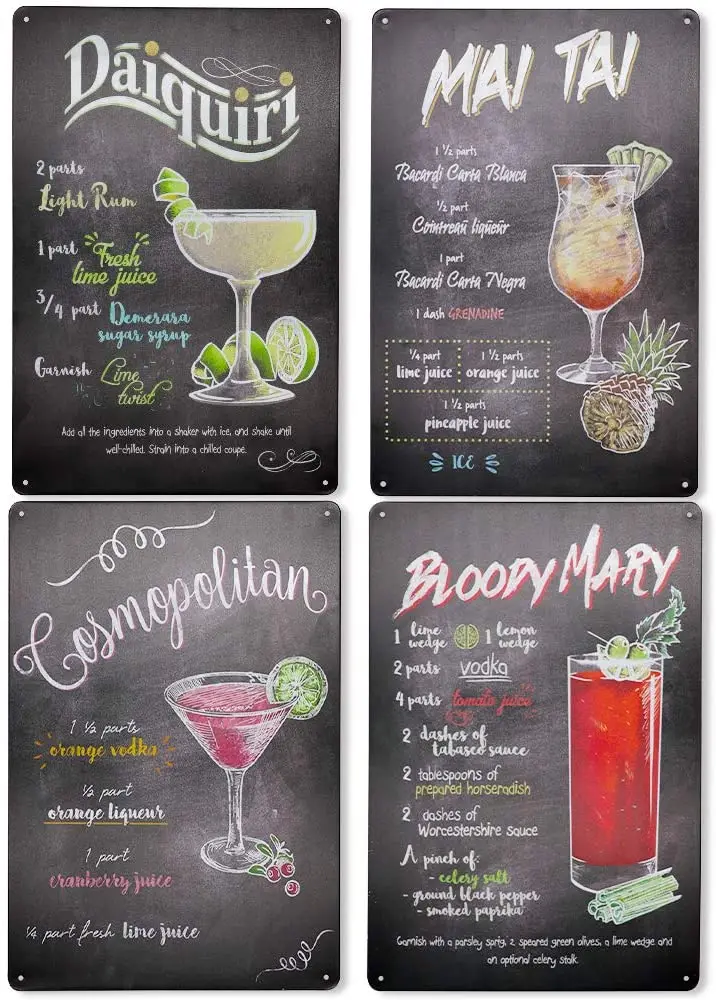 Daiquiri
2 parts
Light Rum
1 part Fresh
lime juice
3/4 part Demerara
sugar syrup
Garnish Lime
twist
Add all the ingredients into a shaker with ice, and shake until
well-chilled. Strain into a chilled coupe.
MAI TAI
1 ½ parts
Bacardi Carta Blanca
½ part
Cointreau liqueur
1 part
Bacardi Carta Negra
1 dash GRENADINE
¼ part 1 ½ parts
lime juice orange juice
1 ½ parts
pineapple juice
ICE
Cosmopolitan
1 ½ parts
orange vodka
½ part
orange liqueur
1 part
cranberry juice
¼ part fresh lime juice
BLOODY MARY
1 lime wedge 1 lemon wedge
2 parts vodka
4 parts tomato juice
2 dashes of
tabasco sauce
2 tablespoons of
prepared horseradish
2 dashes of
Worcestershire sauce
A pinch of:
- celery salt
- ground black pepper
- smoked paprika
Garnish with a parsley sprig, 2 speared green olives, a lime wedge and
an optional celery stalk.